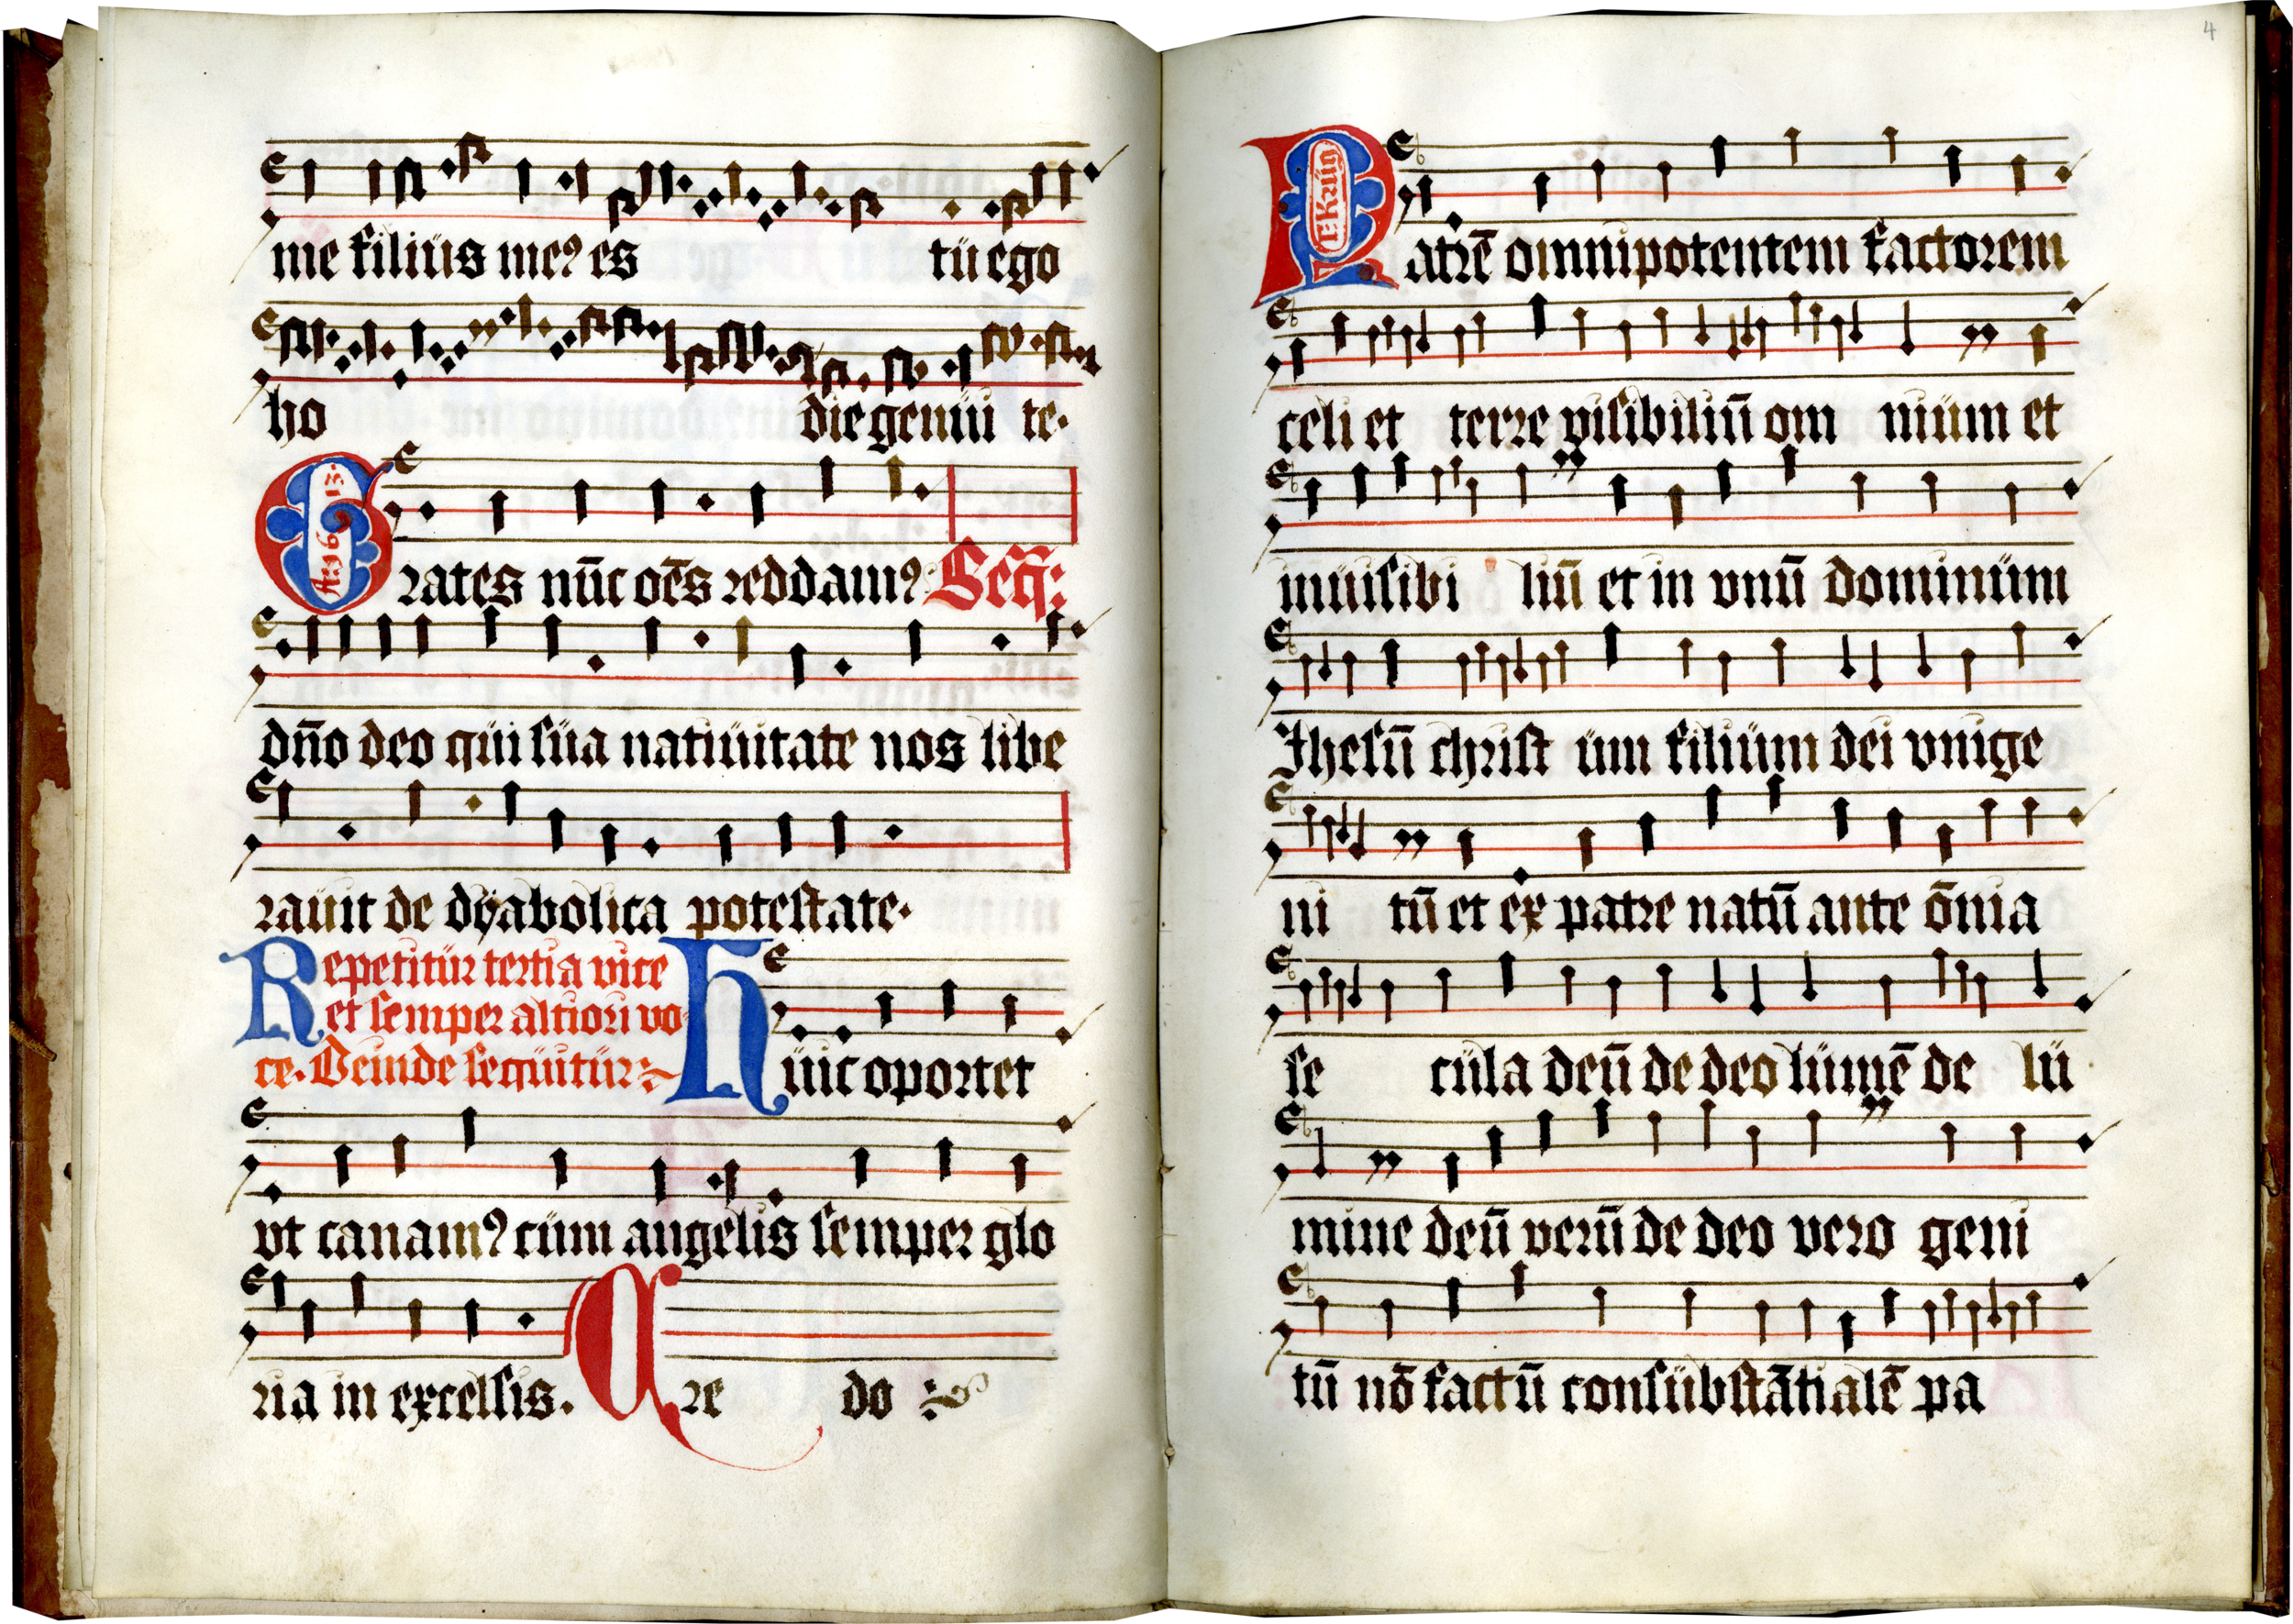 me filiüs meꝰ es tü ego
ho die genüi te·
Grates nūc oēs reddamꝰ Seq̄:
dn̄o deo qüi süa natiüitate nos libe
raüit de dÿabolica potestate·
Repetitür tertia vice
et semper altiori vo
ce. Deinde seqüitür:
Hüic oportet
vt canamꝰ cüm angelis semper glo
ria in excelsis. Cre do
4
Patrē omnipotentem factorem
celi et terre visibiliū om niüm et
inüisibi liū et in vnū dominüm
Jhesū christ üm filiüm dei vnige
ni tū et ex patre natū ante ōnia
se cüla deū de deo lümē de lü
mine deū verū de deo vero geni
tū nō factū consübstātialē pa